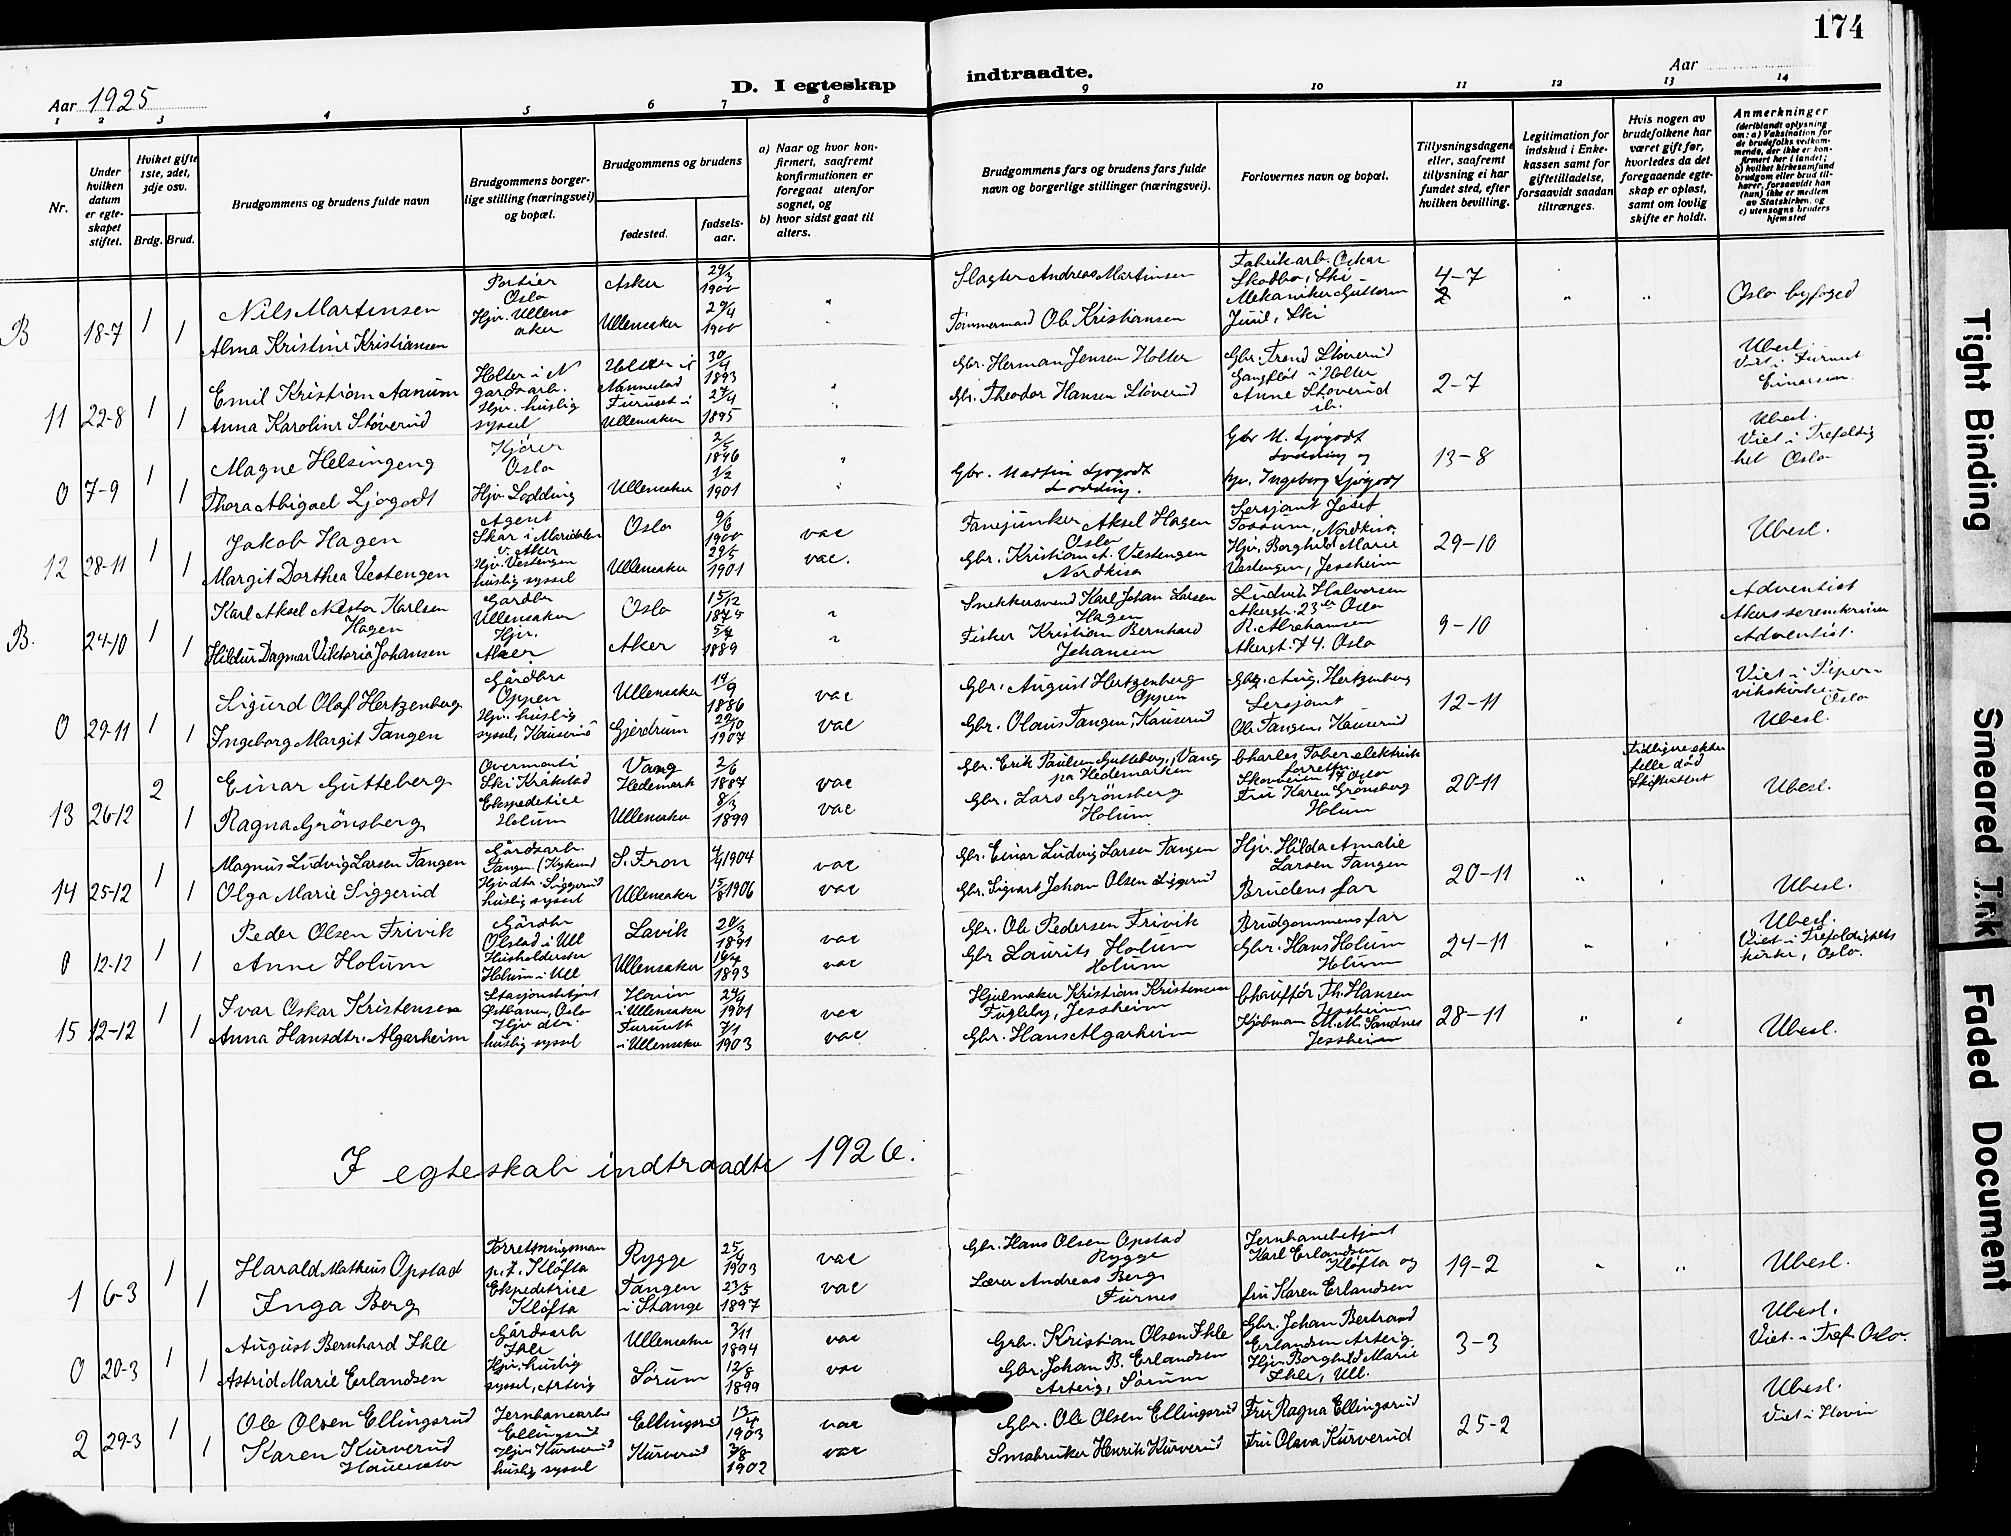 174
Aar 1925
D. I egteskap
indtraadte.
Aar
1 2 3 4 5 6 7 8 9 10 11 12 13 14
Nr.
Under hvilken datum er egteskapet stiftet.
Hviket gifte 1ste, 2det, 3dje osv.
Brdg. Brud.
Brudgommens og brudens fulde navn
Brudgommens borgerlige stilling (næringsvei) og bopæl.
Brudgommens og brudens
fødested.
fødselsaar.
a) Naar og hvor konfirmert, saafremt konfirmationen er foregaat utenfor sognet, og
b) hvor sidst gaat til alters.
Brudgommens fars og brudens fars fulde navn og borgerlige stillinger (næringsvei).
Forlovernes navn og bopæl.
Tillysningsdagene eller, saafremt tillysning ei har fundet sted, efter hvilken bevilling.
Legitimation for indskud i Enkekassen samt for giftetilladelse, forsaavidt saadan tiltrænges.
Hvis nogen av brudefolkene har været gift før, hvorledes da det foregaaende egteskap er opløst, samt om lovlig skifte er holdt.
Anmerkninger
(deriblandt oplysning om: a) Vaksination for de brudefolks vedkommende, der ikke er konfirmert her i landet; b) hvilket kirkesamfund brudgom eller brud tilhører, forsaavidt han (hun) ikke er medlem av Statskirken, og c) utensogns bruders hjemsted
B 18-7 1 Nils Martinsen Portier Oslo Asker 29/3 1900 Slagter Andreas Martinsen Fabrikarb. Oskar Skodbo, Ski 4-7 Oslo byfoged
1 Alma Kristine Kristiansen Hjv. Ullensaker Ullensaker 29/4 1900 Tømmermand Ole Kristiansen Mekaniker Guttorm Juul, Ski
11 22-8 1 Emil Kristian Aanum Holter i N gardsarb. Holter i Nannestad 30/4 1893 Gbr. Herman Jensen Holter Gbr. Trend Støverud 2-7 Ubesl.
1 Anna Karoline Støverud Hjv. huslig syssel Furuset i Ullensaker 27/4 1895 Gbr. Theodor Hansen Støverud Anne Støverud
0 7-9 1 Magne Helsingeng Kjører Oslo 1896 Gbr M. Ljøgodt Lodding og 13-8 Ubesl. Viet i Trefoldighet Oslo
1 Thora Abigael Ljøgodt Hjv Lodding Ullensaker 1/2 1901 Gbr. Martin Ljøgodt Lodding. Hjv. Ingeborg Ljøgodt
12 28-11 1 Jakob Hagen Agent Skar i Maridalen v. Aker Oslo 9/6 1900 vac Fanejunker Aksel Hagen Oslo Sersjant Josef Fossum, Nordkisa 29-10 Ubesl.
1 Margit Dorthea Vestengen Hjv. Vestengen huslig syssel Ullensaker 29/5 1901 vac. Gbr. Kristian A. Vestengen Nordkisa Hjv. Borghild Marie Vestengen, Jessheim
B. 24-10 1 Karl Aksel Nestor Karlsen Hagen Gardbr Ullensaker Oslo 15/12 1875 Snekkersvend Karl Johan Larsen Hagen Ludvik Halvorsen Akersgt. 23 Oslo 9-10 Adventist
1 Hildur Dagmar Viktoria Johansen Hjv. Aker Aker 5/7 1889 Fisker Kristian Bernhard Johansen R. Abrahamsen Akersgt. 74. Oslo Adventist.
0 29-11 1 Sigurd Olaf Hertzenberg Gårdbr Oppen Ullensaker 14/9 1886 vac Gbr. August Hertzenberg Oppen Gbr. Aug. Hertzenberg 12-11 Viet i Pipervikskirke Oslo
1 Ingeborg Margit Tangen Hjv. huslig syssel, Kauserud Gjerdrum 29/10 1907 vac Gbr. Olaus Tangen, Kauserud Sersjant Ole Tangen, Kauserud Ubesl.
13 26-12 2 Einar Gutteberg Overmontør Ski Kråkstad Vang Hedemark 2/6 1887 vac Gbr. Erik Paulsen Gutteberg, Vang på Hedemarken Charles Faber elektrisk forretn. Skovveien 17 Oslo 20-11 Tidligere ektefelle død Skifteattest Ubesl.
1 Ragna Grønsberg Ekspeditrice Holum Ullensaker 8/3 1899 vac Gbr. Lars Grønsberg Holum Fru Karen Grønsberg Holum
14 25-12 1 Magnus Ludvig Larsen Tangen Gårdsarb. Tangen S. Fron 1904 vac Gbr. Einar Ludvig Larsen Tangen Hjv. Hilda Amalie Larsen Tangen 20-11 Ubesl.
1 Olga Marie Siggerud Hjv. dtr. Siggerud huslig syssel Ullensaker 15/8 1906 vac Gbr. Sigvart Johan Olsen Siggerud Brudens far
0 12-12 1 Peder Olsen Frivik Gårdbr Olstad i Ull Lavik 20/3 1891 vac Gbr. Ole Pedersen Frivik Brudgommens far 24-11 Ubesl. Viet i Trefoldighets kirke, Oslo.
1 Anne Holum Husholderske Holum i Ull Ullensaker 1893 vac Gbr Laurits Holum Holum Gbr. Hans Holum Holum
15 12-12 1 Ivar Oskar Kristensen Stasjonsbetjent Østbanen, Oslo Hovin i Ullensaker 24/9 1901 vac Hjulmaker Kristian Kristensen Fugleby, Jessheim Chauffør Th. Hansen Jessheim 28-11 Ubesl.
1 Anna Hansdtr. Algarheim Hjv dtr. huslig syssel Furuseth i Ullensaker 7/1 1903 vac Gbr. Hans Algarheim Kjøbman M. M. Sandnes Jessheim
I egteskab indtraadte 1926.
1 6-3 1 Harald Matheus Opstad Forretningsman p.t. Kløfta Rygge 25/4 1903 vac Gbr. Hans Olsen Opstad Rygge Jernbanebetjent Karl Erlandsen Kløfta og 19-2 Ubesl.
1 Inga Berg Ekspeditrice Kløfta Tangen i Stange 23/5 1897 vac Lærer Andreas Berg Furnes fru Karen Erlandsen
0 20-3 1 August Bernhard Ihle Gårdsarb Ihle Ullensaker 3/11 1894 vac Gbr. Kristian Olsen Ihle Gbr. Johan Bertrand Erlandsen Arteig 3-3 Ubesl. Viet i Tref. Oslo.
1 Astrid Marie Erlandsen Hjv. huslig syssel, Arteig Sørum 12/8 1899 vac Gbr. Johan B. Erlandsen Arteig, Sørum Hjv. Borghild Marie Ihle, Ull.
2 29-3 1 Ole Olsen Ellingsrud Jernbanearb Ellingsrud Ellingsrud 13/4 1903 vac Gbr. Ole Olsen Ellingsrud Fru Ragna Ellingsrud 25-2 Ubesl. Viet i Hovin
1 Karen Kurverud Hjv. Kurverud huslig syssel Kurverud 1902 vac Småbruker Henrik Kurverud Fru Olava Kurverud
Tight Binding
Smeared Ink
Faded Document